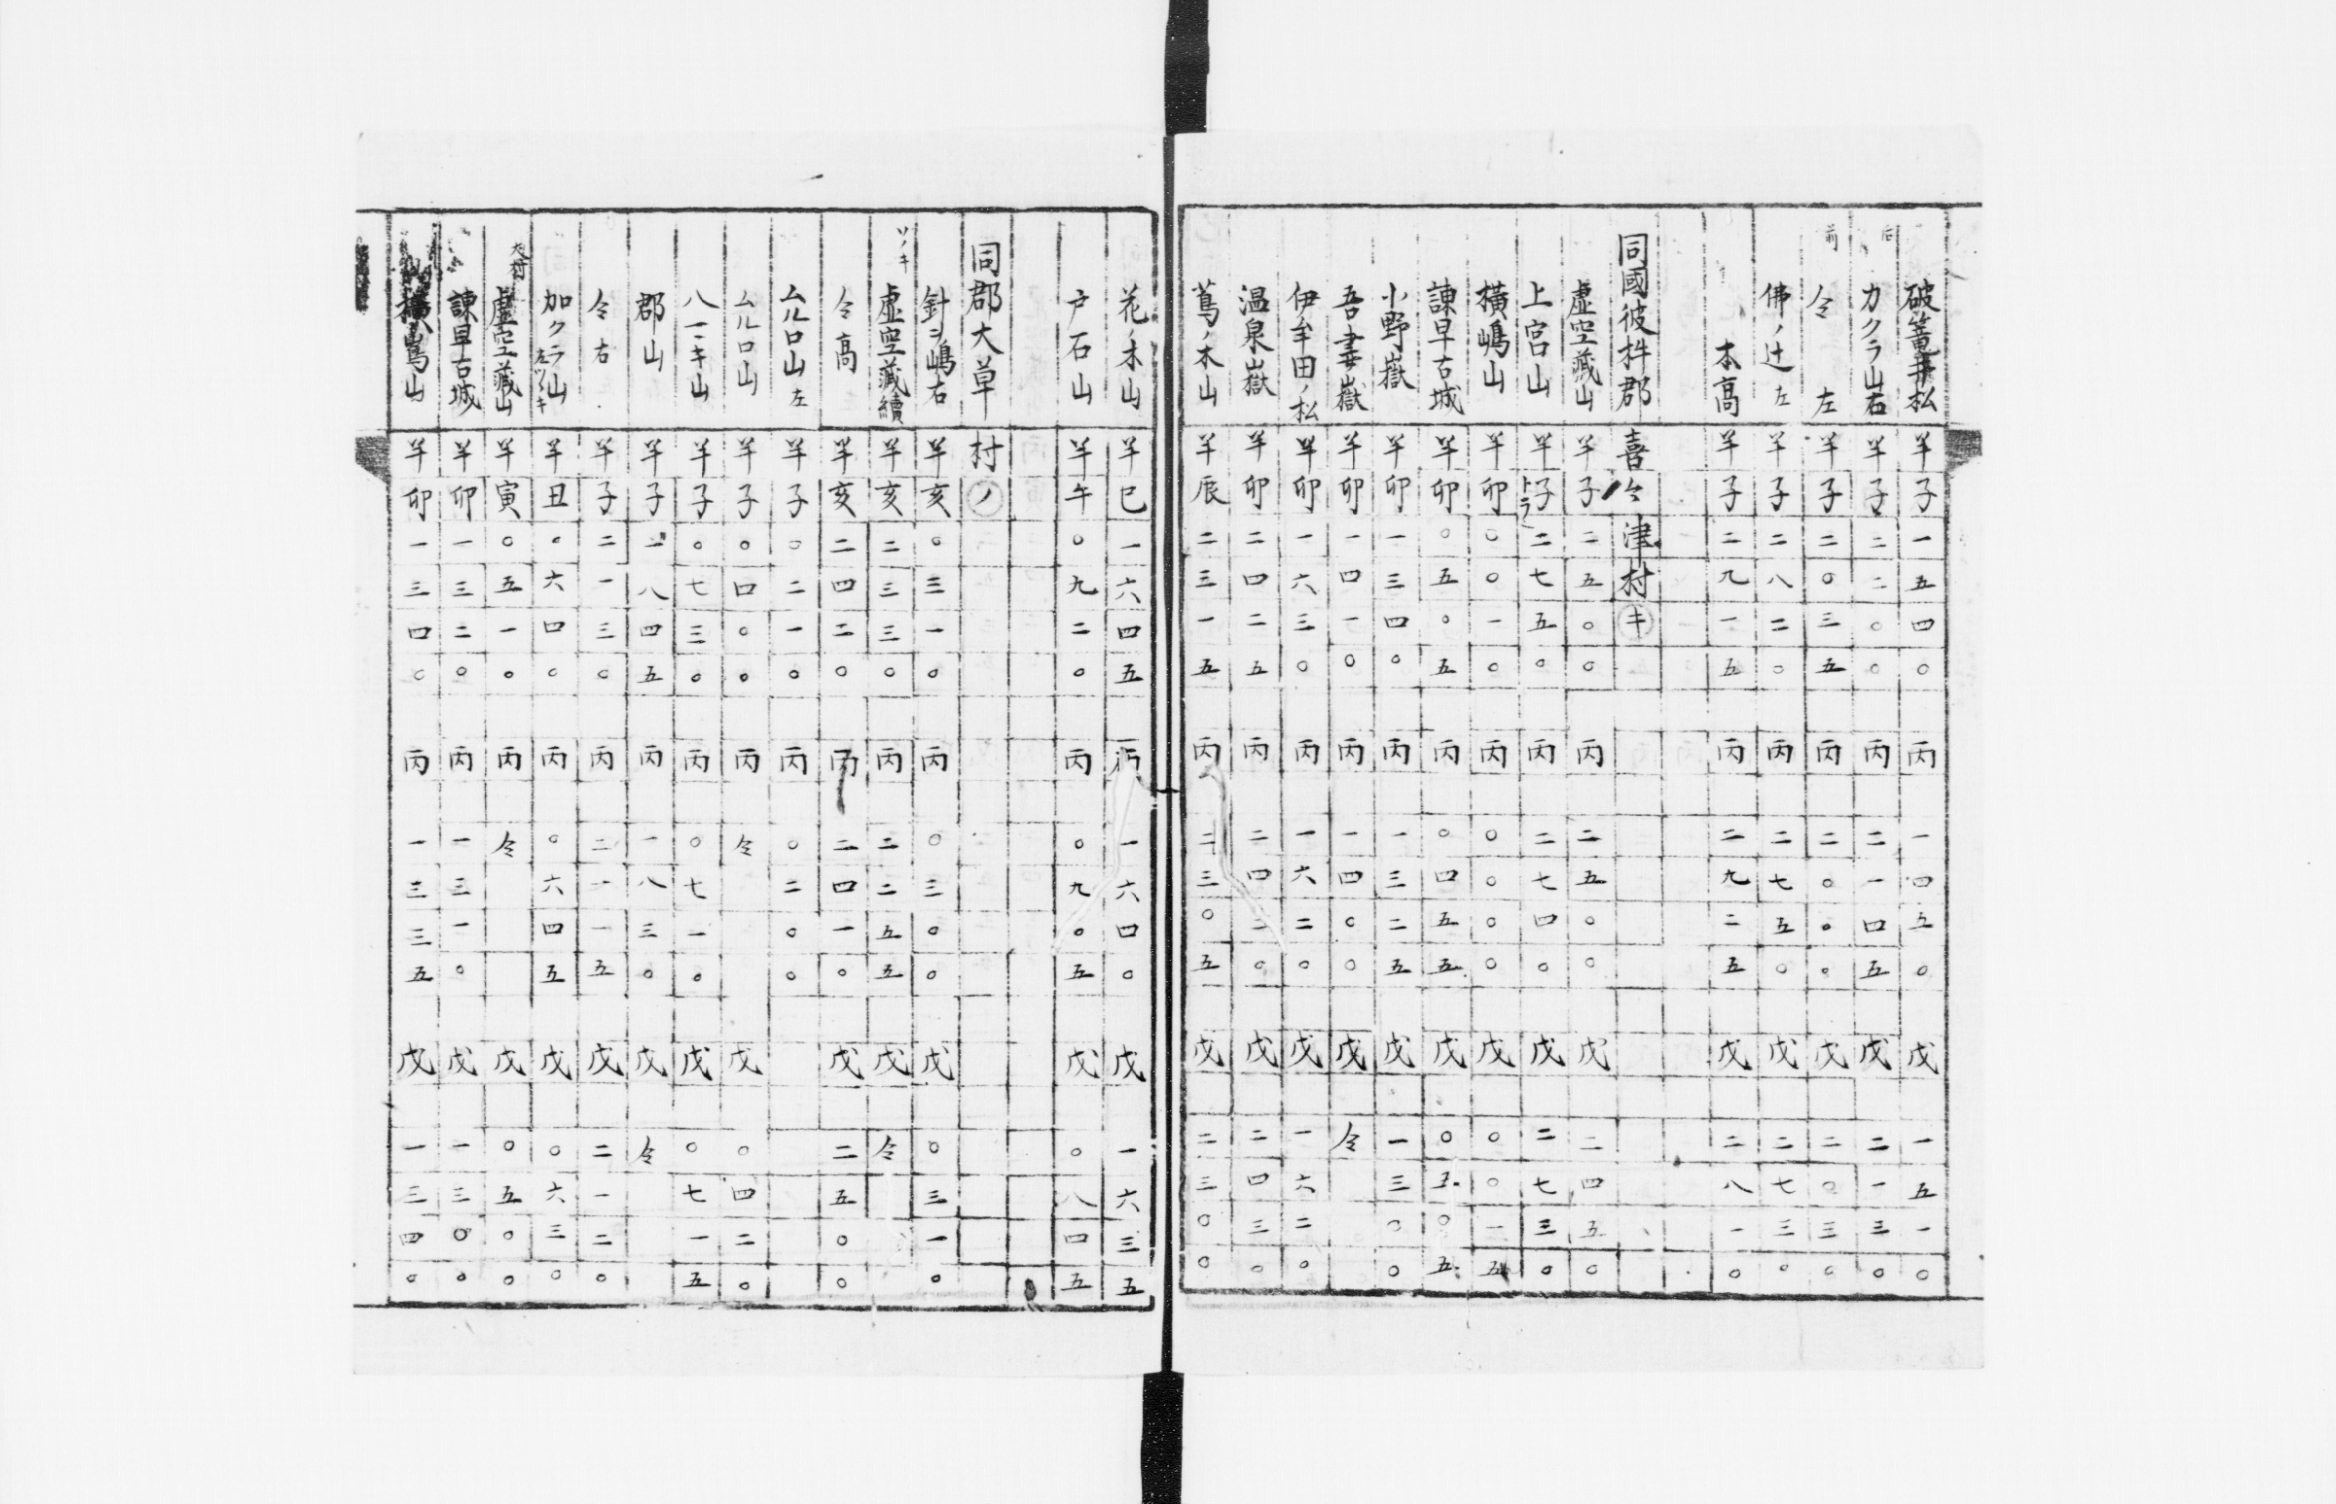 破篭井松 羊子 一五四〇 丙 一四五〇 戊 一五一〇
カクラ山右 羊子 二二〇〇 丙 二一四五 戊 二一三〇
前 仝 左 羊子 二〇三五 丙 二〇〇〇 戊 二〇三〇
佛ノ辻 左 羊子 二八二〇 丙 二七五〇 戊 二七三〇
本高 羊子 二九一五 丙 二九二五 戊 二八一〇
同國彼杵郡 喜々津村 キ
虚空藏山 羊子 二五〇〇 丙 二五〇〇 戊 二四五〇
上宮山 羊子 トラ 二七五〇 丙 二七四〇 戊 二七三〇
横嶋山 羊卯 〇〇一〇 丙 〇〇〇〇 戊 〇〇一五
諫早古城 羊卯 〇五〇五 丙 〇四五五 戊 〇五〇五
小野嶽 羊卯 一三四〇 丙 一三二五 戊 一三〇〇
吾妻嶽 羊卯 一四一〇 丙 一四〇〇 戊 仝
伊牟田ノ松 羊卯 一六三〇 丙 一六二〇 戊 一六二〇
温泉嶽 羊卯 二四二五 丙 二四二〇 戊 二四三〇
蔦ノ木山 羊辰 二三一五 丙 二三〇五 戊 二三〇〇
花ノ木山 羊巳 一六四五 丙 一六四〇 戊 一六三五
戸石山 羊午 〇九二〇 丙 〇九〇五 戊 〇八四五
同郡大草村 ノ
針ヲ嶋右 羊亥 〇三一〇 丙 〇三〇〇 戊 〇三一〇
ソノキ 虚空藏續 羊亥 二三三〇 丙 二二五五 戊 仝
仝高 羊亥 二四二〇 丙 二四一〇 戊 二五〇〇
ムルロ山 左 羊子 〇二一〇 丙 〇二〇〇
ムルロ山 羊子 〇四〇〇 丙 仝 戊 〇四二〇
八ニキ山 羊子 〇七三〇 丙 〇七一〇 戊 〇七一五
郡山 羊子 一八四五 丙 一八三〇 戊 仝
仝右 羊子 二一三〇 丙 二一一五 戊 二一二〇
加クラ山 左ツヽキ 羊丑 〇六四〇 丙 〇六四五 戊 〇六三〇
大村 虚空藏山 羊寅 〇五一〇 丙 仝 戊 〇五〇〇
諫早古城 羊卯 一三二〇 丙 一三一〇 戊 一三〇〇
横嶌山 羊卯 一三四〇 丙 一三三五 戊 一三四〇